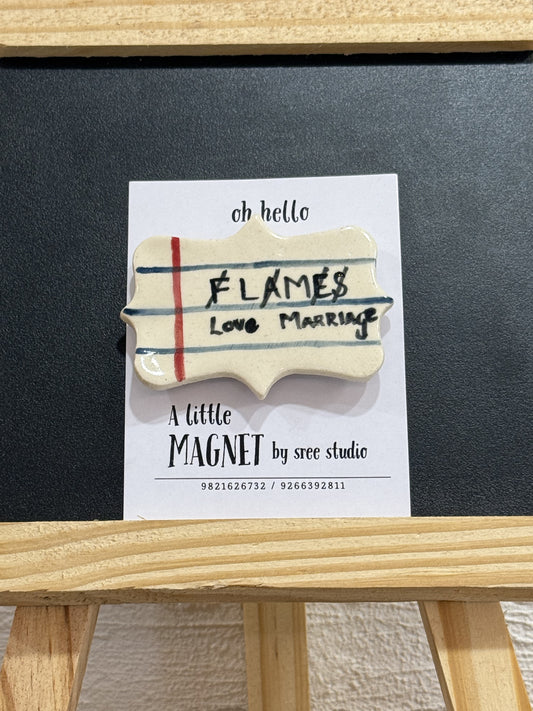 oh hello
FLAMES
Love Marriage
A little
MAGNET by sree studio
9821626732 / 9266392811